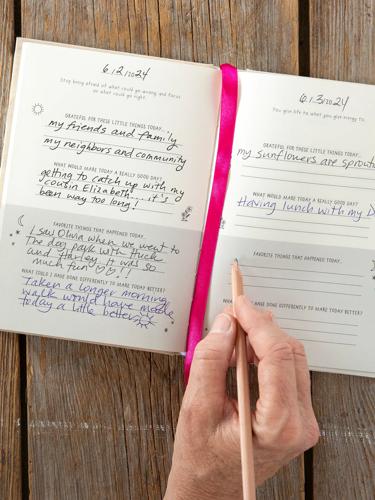 6/2/2024
Stop being afraid of what could go wrong and focus
on what could go right.
GRATEFUL FOR THESE LITTLE THINGS TODAY...
my friends and family
my neighbors and community
WHAT WOULD MAKE TODAY A REALLY GOOD DAY?
getting to catch up with my
cousin Elizabeth... it's
been way too long!
FAVORITE THINGS THAT HAPPENED TODAY...
I saw Olivia when we went to
The dog park with Huck
and Harley. It was so
much fun!!
WHAT COULD I HAVE DONE DIFFERENTLY TO MAKE TODAY BETTER?
Taken a longer morning
walk would have made
today a little better
6/3/2024
You give life to what you give energy to.
GRATEFUL FOR THESE LITTLE THINGS TODAY...
my sunflowers are sprouti
WHAT WOULD MAKE TODAY A REALLY GOOD DAY?
Having lunch with my D
FAVORITE THINGS THAT HAPPENED TODAY...
HAVE DONE DIFFERENTLY TO MAKE TODAY BETTER?